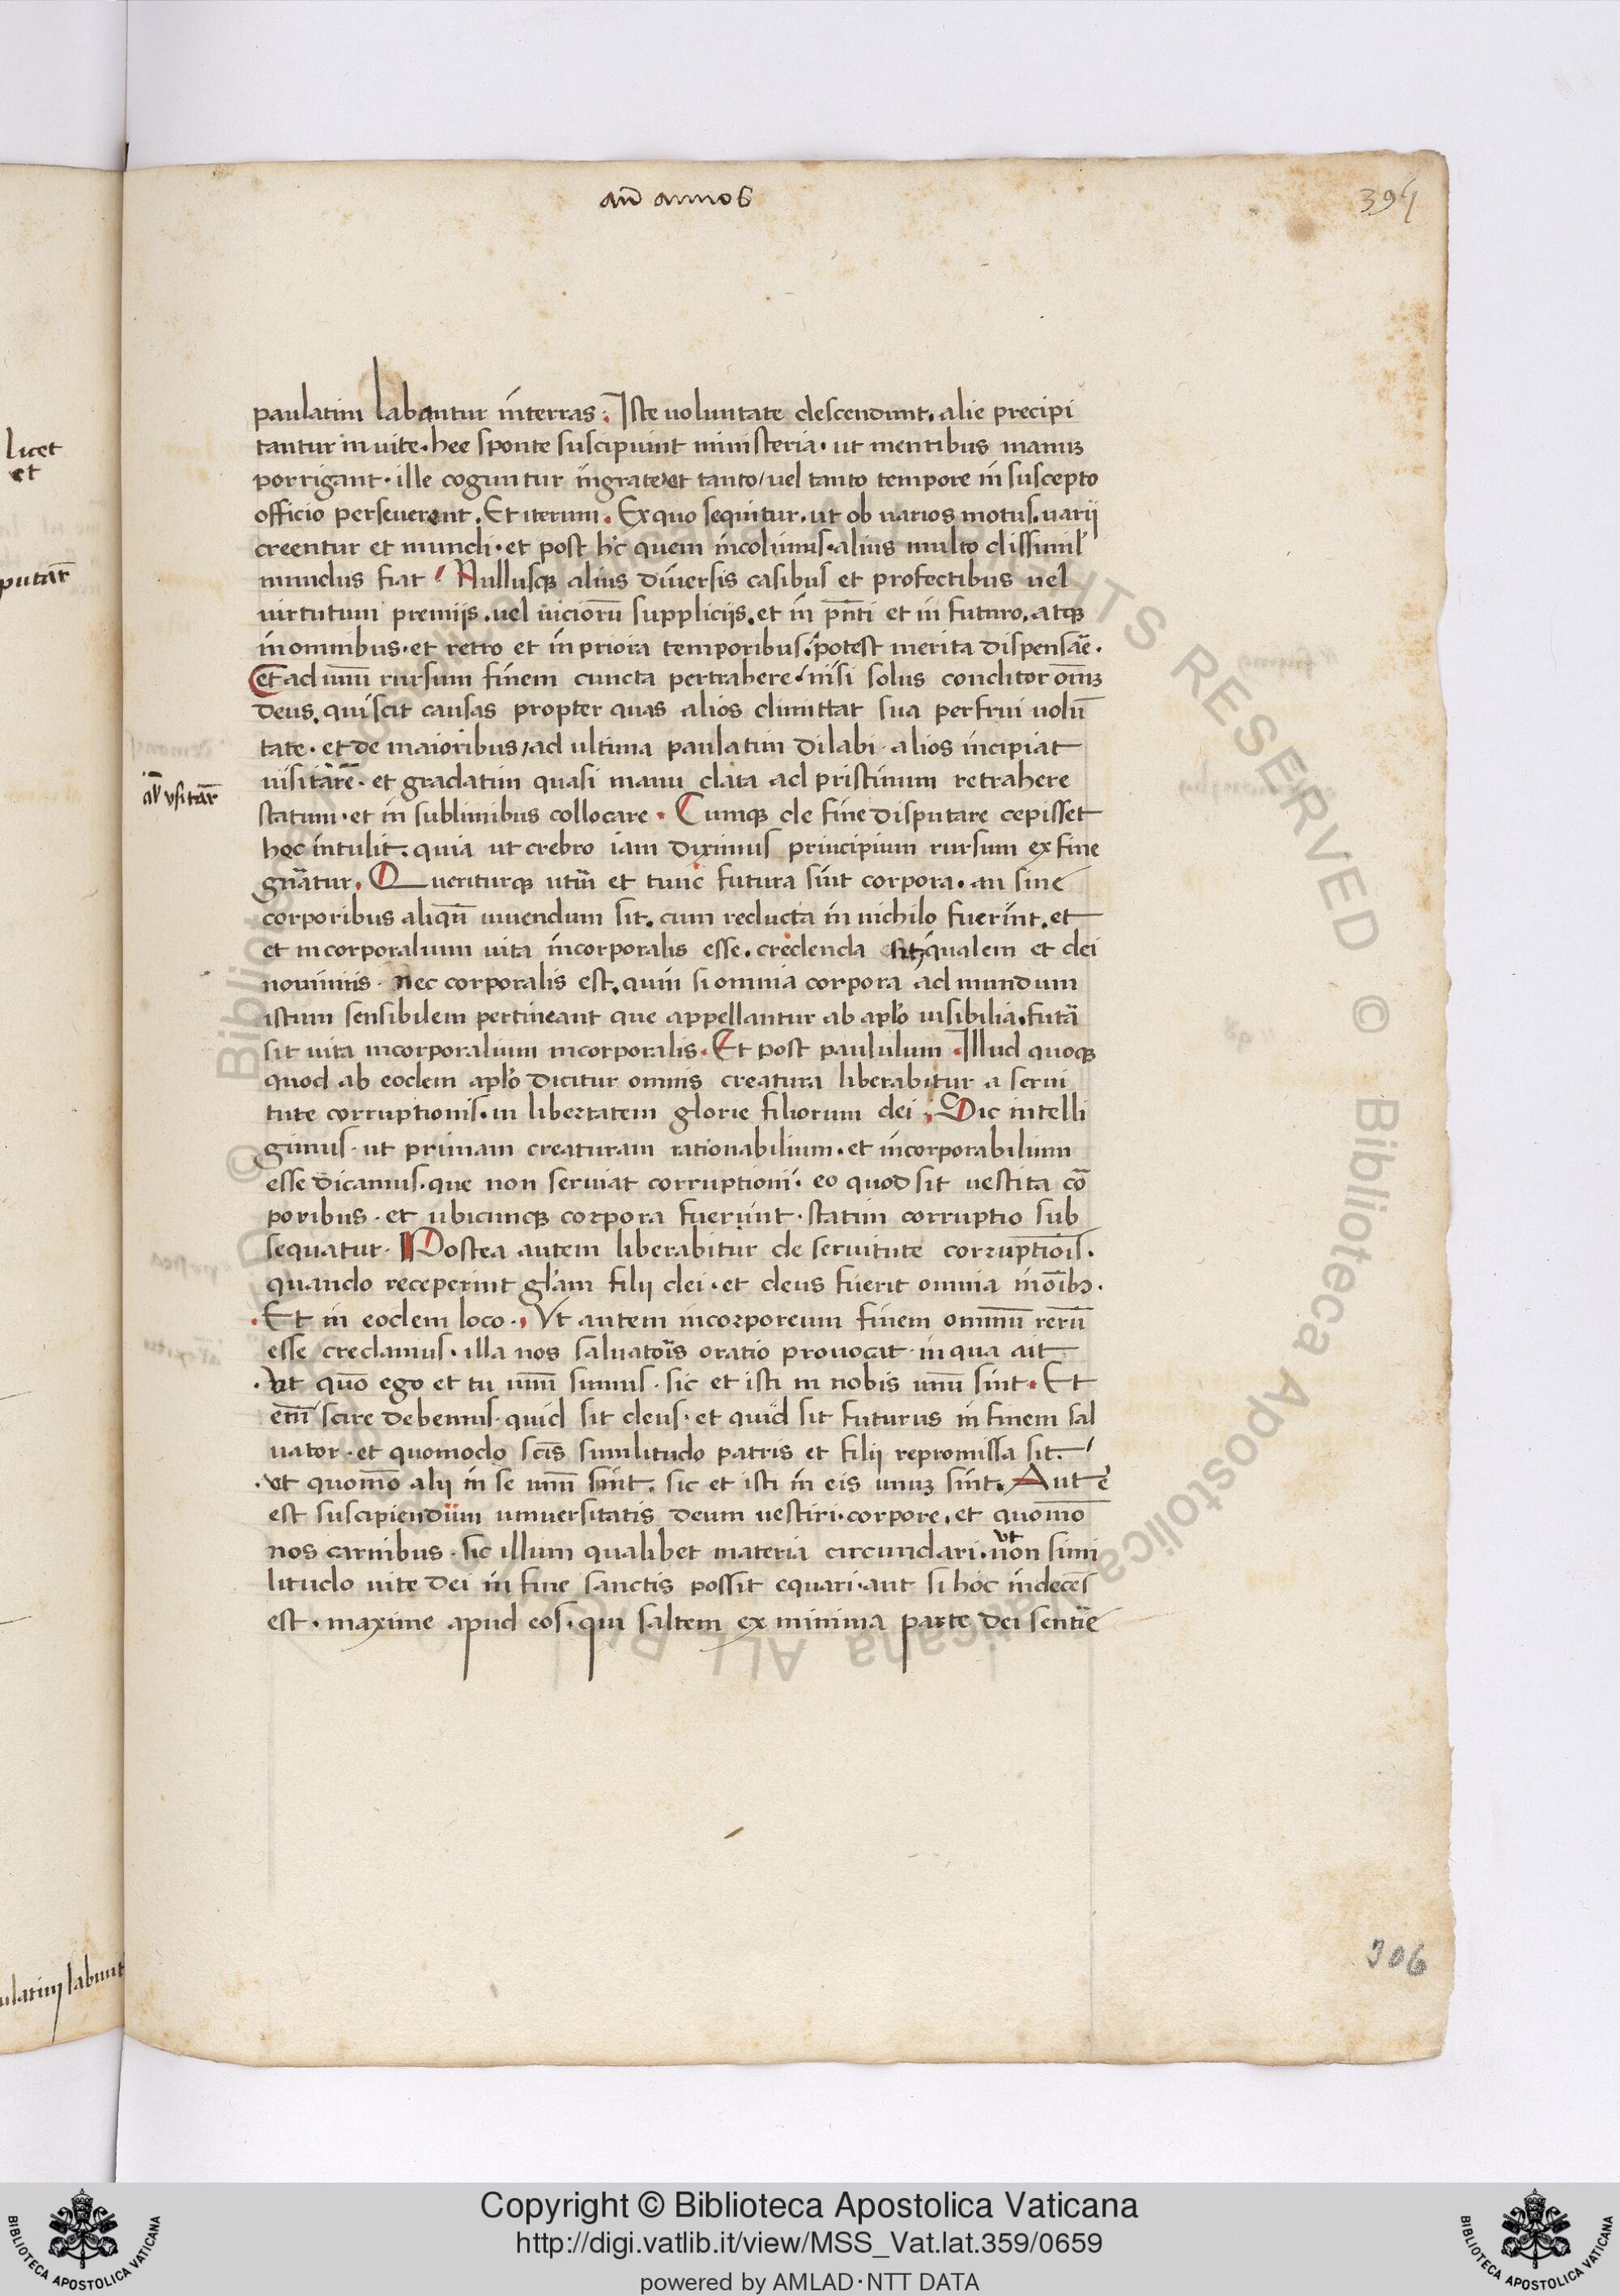 an̄ annos
394
paulatim labantur in terras. Iste uoluntate descendunt. alie precipi
tantur inuite. hee sponte suscipiunt ministeria. ut mentibus manuꝫ
porrigant. ille coguntur ingrate et tanto / uel tanto tempore in suscepto
officio perseuerent. Et iterum. Ex quo sequitur. ut ob uarios motus. uarij
creentur et mundi. et post hc̄ quem incolimus. alius multo dissimil'
mundus fiat. Nullusqꝫ alius diuersis casibus et profectibus uel
uirtutum premijs. uel uiciorū supplicijs. et in pn̄ti et in futuro. atqꝫ
in omnibus. et retro et in priora temporibus. potest merita dispensar̄e.
et ad unū rursum finem cuncta pertrahere / nisi solus conditor om̄iꝫ
deus. qui scit causas propter quas alios dimittat sua perfrui uolū
tate. et de maioribus / ad ultima paulatim dilabi. alios incipiat
uisitare. et gradatim quasi manu data ad pristinum retrahere
al' vsitar̄
statum. et in sublimibus collocare. Cumqꝫ de fine disputare cepisset
hec intulit. quia ut crebro iam diximus principium rursum ex fine
gn̄atur. Queriturqꝫ utrū et tunc futura sint corpora. an sine
corporibus aliqn̄ uiuendum sit. cum reducta in nichilo fuerint. et
et incorporalium uita incorporalis esse. credenda sit qualem et dei
nouimus. nec corporalis est. quin si omnia corpora ad mundum
istum sensibilem pertineant que appellantur ab apl'o uisibilia. futā
sit uita incorporalium incorporalis. Et post paululum. Illud quoqꝫ
quod ab eodem apl'o dicitur omnis creatura liberabitur a serui
tute corruptionis. in libertatem glorie filiorum dei. Sic intelli
gimus. ut primam creaturam rationabilium. et incorporabilium
esse dicamus. que non seruiat corruptioni. eo quod sit uestita cō
poribus. et ubicunqꝫ corpora fuerunt. statim corruptio sub
sequatur. Postea autem liberabitur de seruitute corruptiōis.
quando receperint gl'am filij dei. et deus fuerit omnia in oībꝫ.
Et in eodem loco. Vt autem incorporeum finem omniū rerū
esse credamus. illa nos saluatoīs oratio prouocat. in qua ait
Vt quō ego et tu unū sumus. sic et isti in nobis unū sint. Et
enī scire debemus. quid sit deus. et quid sit futurus in finem sal
uator. et quomodo scīs similitudo patris et filij repromissa sit.
ut quomō alij in se unū sint. sic et isti in eis unuꝫ sint. Aut ē
est suscipiendum uniuersitatis deum uestiri. corpore. et quomō
nos carnibus. sic illum qualibet materia circundari. vt nōn simi
litudo uite dei in fine sanctis possit equari. aut si hoc indecēs
est. maxime apud eos. qui saltem ex minima parte dei sentire
306
licet
et
putar̄
ulatim labunt
Copyright © Biblioteca Apostolica Vaticana
http://digi.vatlib.it/view/MSS_Vat.lat.359/0659
powered by AMLAD·NTT DATA
BIBLIOTECA APOSTOLICA VATICANA
BIBLIOTECA APOSTOLICA VATICANA